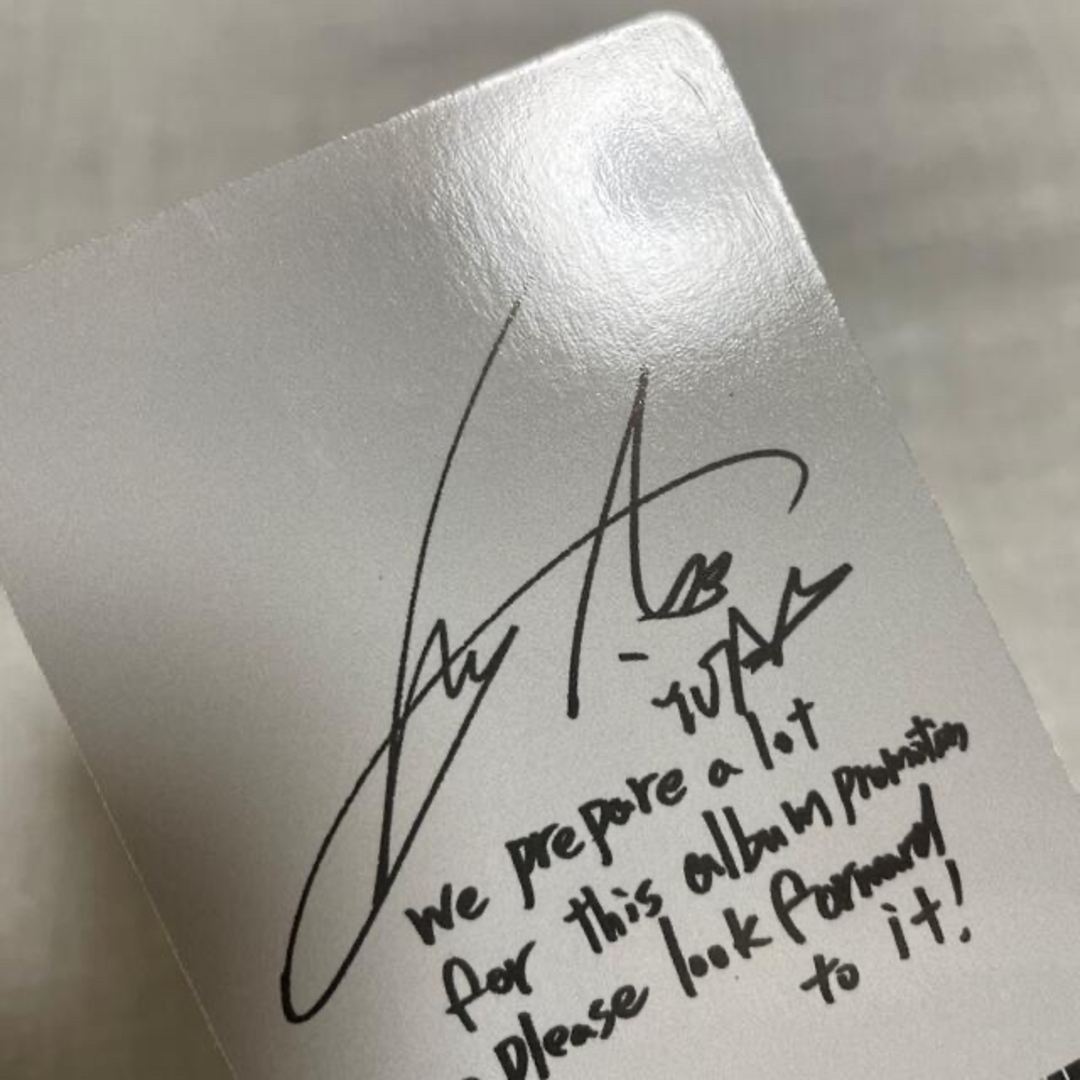 we prepare a lot
for this album promotion
please look forward
to it!